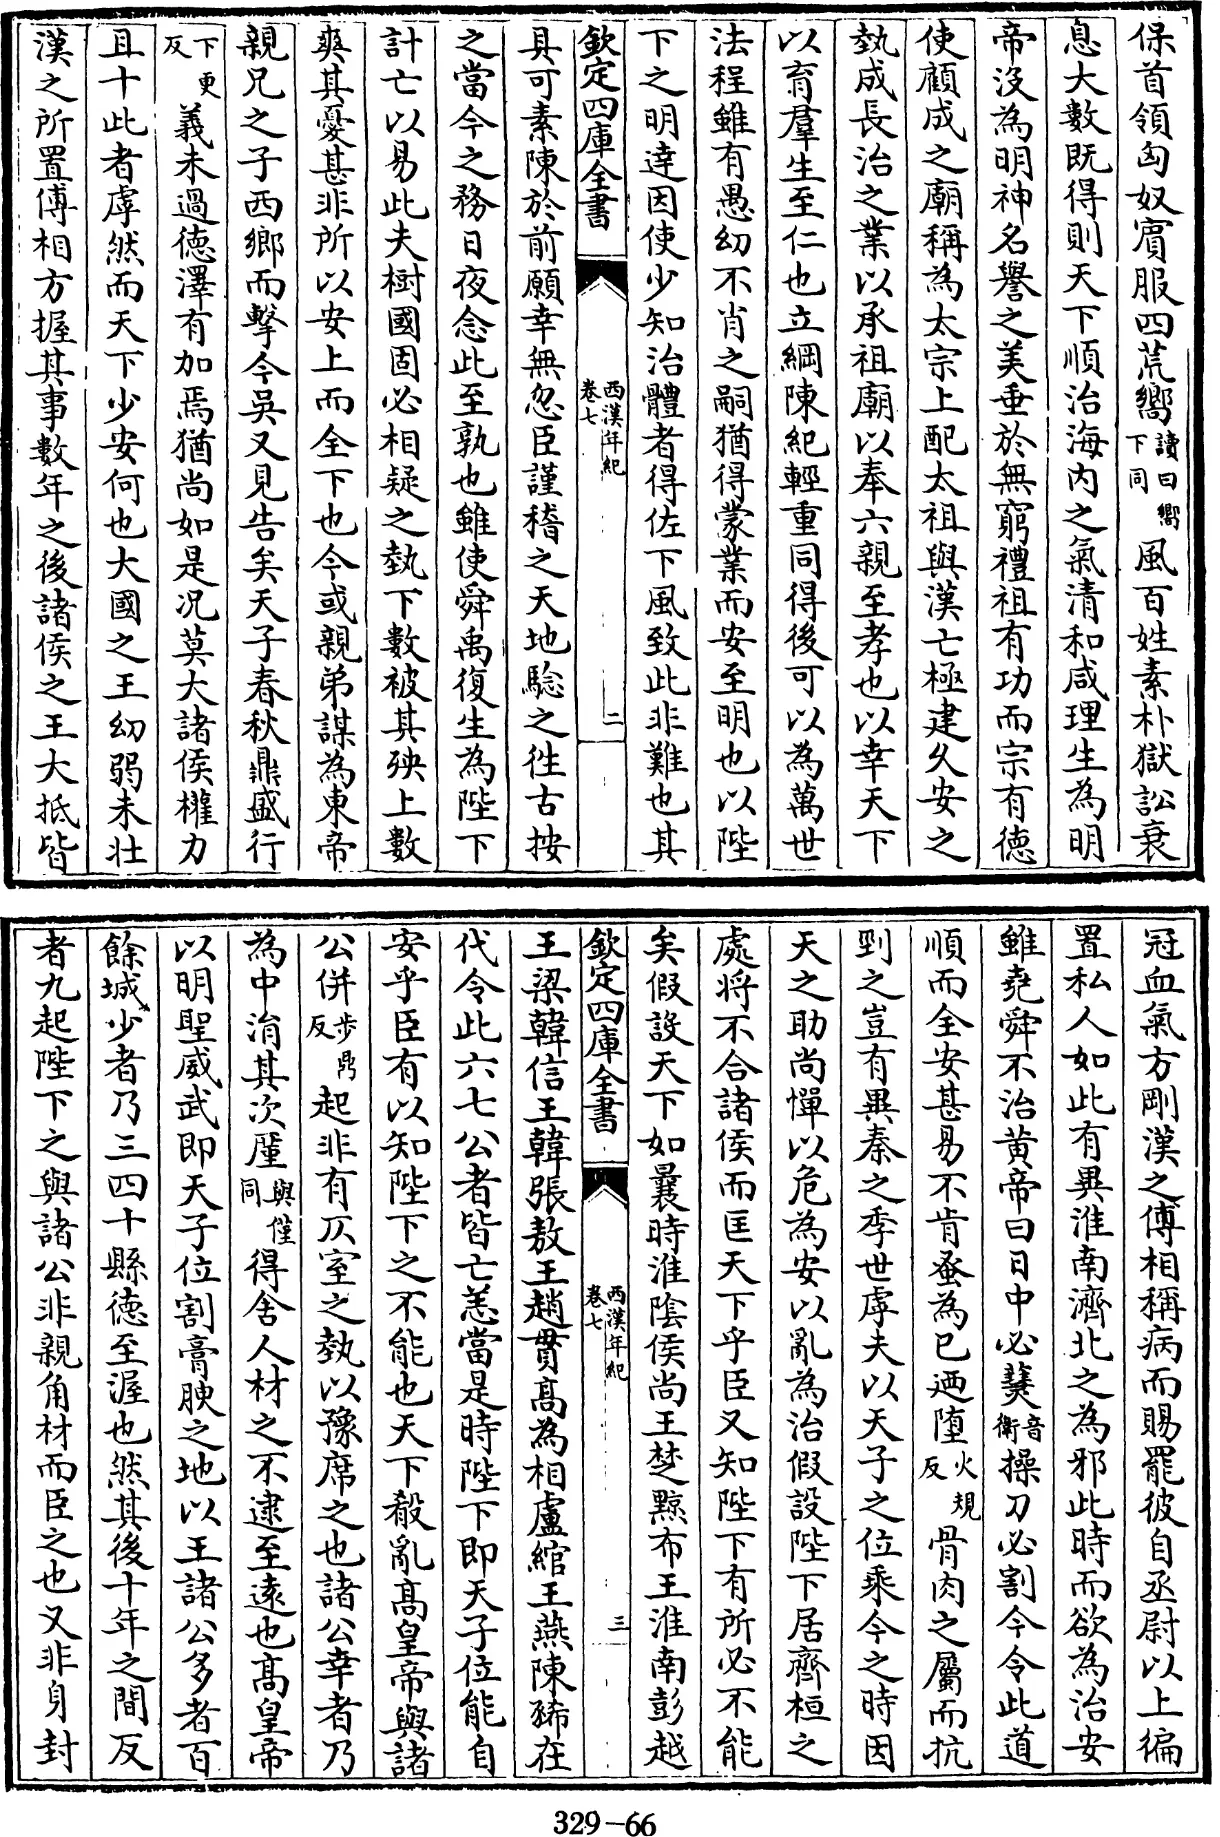 保首領匈奴賓服四荒嚮讀曰嚮下同風百姓素朴獄訟衰
息大數既得則天下順治海内之氣清和咸理生為明
帝没為明神名譽之美垂於無窮禮祖有功而宗有德
使顧成之廟稱為太宗上配太祖與漢亡極建久安之
埶成長治之業以承祖廟以奉六親至孝也以幸天下
以育羣生至仁也立綱陳紀輕重同得後可以為萬世
法程雖有愚幼不肖之嗣猶得蒙業而安至明也以陛
下之明達因使少知治體者得佐下風致此非難也其
欽定四庫全書 西漢年紀卷七 二
具可素陳於前願幸無忽臣謹稽之天地驗之徃古按
之當今之務日夜念此至孰也雖使舜禹復生為陛下
計亡以易此夫樹國固必相疑之埶下數被其殃上數
爽其憂甚非所以安上而全下也今或親弟謀為東帝
親兄之子西鄉而擊今吳又見告矣天子春秋鼎盛行
下更反義未過德澤有加焉猶尚如是况莫大諸侯權力
且十此者虖然而天下少安何也大國之王幼弱未壯
漢之所置傅相方握其事數年之後諸侯之王大抵皆
冠血氣方剛漢之傅相稱病而賜罷彼自丞尉以上徧
置私人如此有異淮南濟北之為邪此時而欲為治安
雖堯舜不治黄帝曰日中必䕫音衛操刀必割今令此道
順而全安甚易不肯蚤為已迺墮火規反骨肉之屬而抗
剄之豈有異秦之季世虖夫以天子之位乘今之時因
天之助尚憚以危為安以亂為治假設陛下居齊桓之
處将不合諸侯而匡天下乎臣又知陛下有所必不能
矣假設天下如曩時淮隂侯尚王楚黥布王淮南彭越
欽定四庫全書 西漢年紀卷七 三
王梁韓信王韓張敖王趙貫髙為相盧綰王燕陳豨在
代令此六七公者皆亡恙當是時陛下即天子位能自
安乎臣有以知陛下之不能也天下殽亂髙皇帝與諸
公併步鼎反起非有仄室之埶以豫席之也諸公幸者乃
為中涓其次厪與僅同得舍人材之不逮至逺也髙皇帝
以明聖威武即天子位割膏腴之地以王諸公多者百
餘城少者乃三四十縣德至渥也然其後十年之間反
者九起陛下之與諸公非親角材而臣之也又非身封
329-66